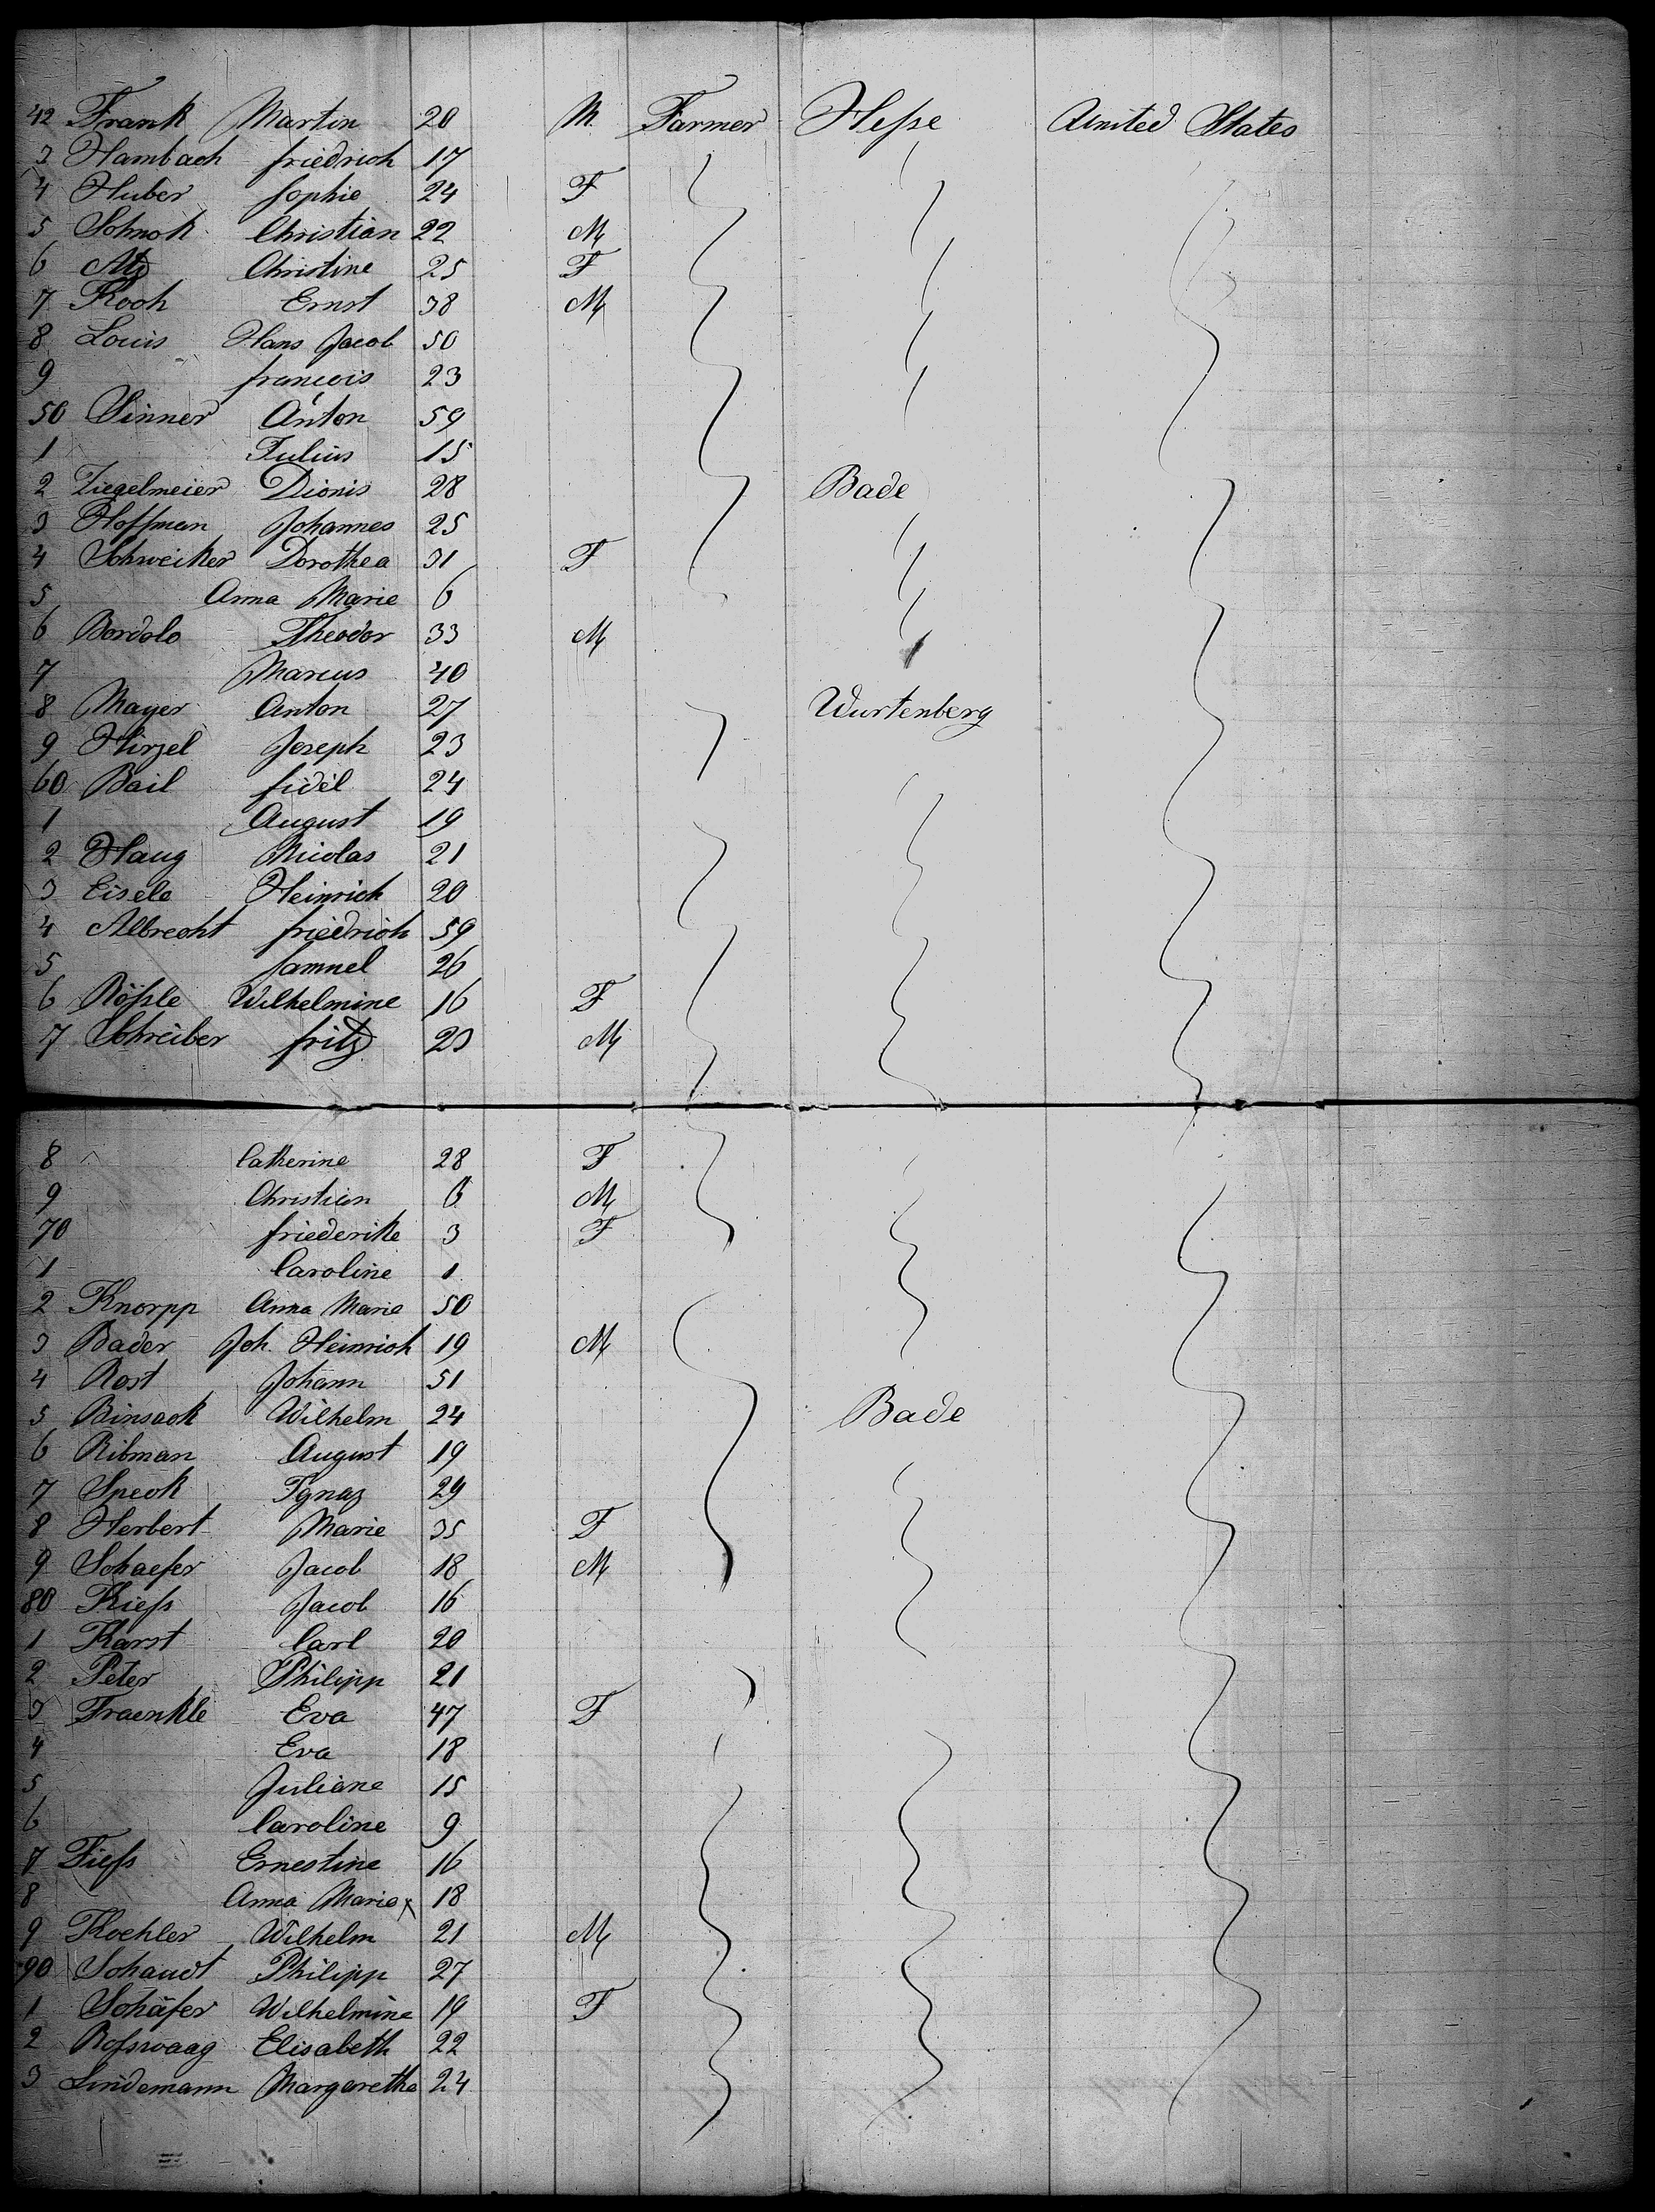 42 Frank Martin 20 M. Farmer Hesse United States
3 Hambach friedrich 17
4 Huber Sophie 24 F
5 Schnok Christian 22 M
6 Atz Christine 25 F
7 Koch Ernst 38 M
8 Louis Hans Jacob 50
9 francois 23
50 Sinner Anton 59
1 Julius 15
2 Ziegelmeier Dionis 28 Bade
3 Hoffman Johannes 25
4 Schweiker Dorothea 31 F
5 Anna Marie 6
6 Bordolo Theodor 33 M
7 Marcus 40
8 Mayer Anton 27 Wurtenberg
9 Hirzel Joseph 23
60 Bail fidèl 24
1 August 19
2 Haug Nicolas 21
3 Eisele Heinrich 20
4 Albrecht friedrich 59
5 Samuel 26
6 Rössle Wilhelmine 16 F
7 Schreiber fritz 23 M
8 Catherine 28 F
9 Christian 6 M
70 friederike 3 F
1 Caroline 1
2 Knorpp Anna Marie 50
3 Bader Joh. Heinrich 19 M
4 Rost Johann 51
5 Binsack Wilhelm 24 Bade
6 Ribman August 19
7 Speck Ignaz 29
8 Herbert Marie 35 F
9 Schaefer Jacob 18 M
80 Kiess Jacob 16
1 Karst Carl 20
2 Peter Philipp 21
3 Fraenkle Eva 47 F
4 Eva 18
5 Juliane 15
6 Caroline 9
7 Fiess Ernestine 16
8 Anna Marie x 18
9 Koehler Wilhelm 21 M
90 Schaudt Philipp 27
1 Schäfer Wilhelmine 19 F
2 Rosswaag Elisabeth 22
3 Lindemann Margarethe 24